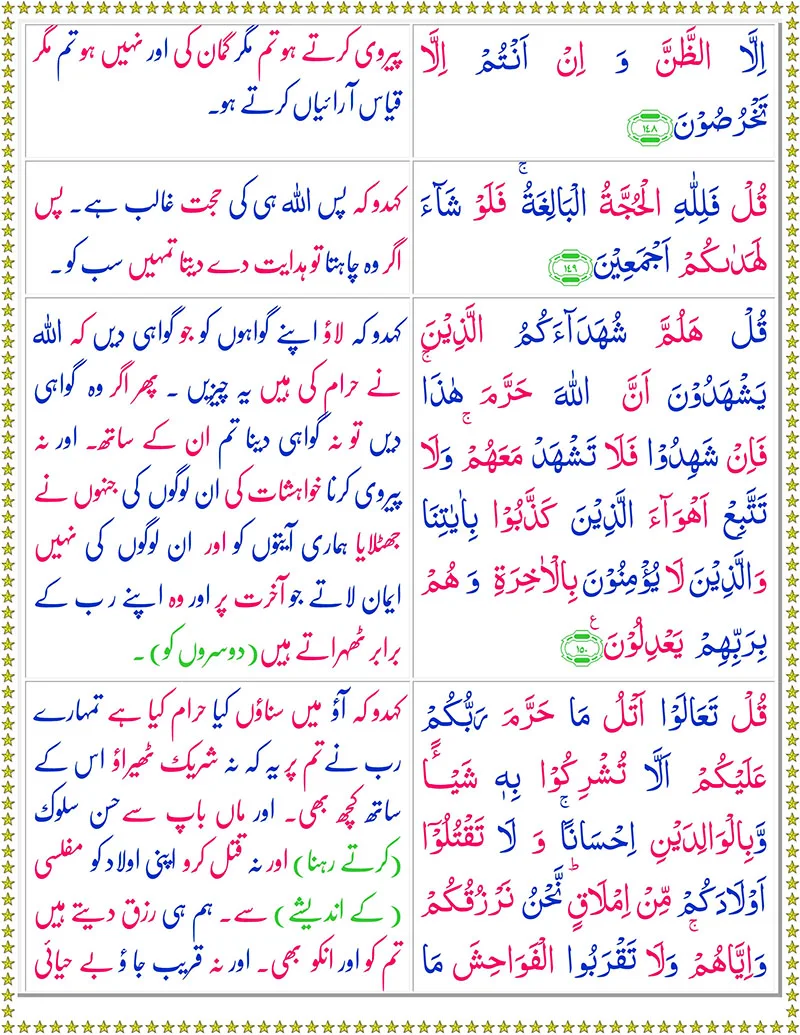 اِلَّا الظَّنَّ وَ اِنْ اَنْتُمْ اِلَّا
تَخْرُصُوْنَ ﴿۱۴۸﴾
پیروی کرتے ہو تم مگر گمان کی اور نہیں ہو تم مگر
قیاس آرائیاں کرتے ہو۔
قُلْ فَلِلّٰهِ الْحُجَّةُ الْبَالِغَةُ ۚ فَلَوْ شَآءَ
لَهَدٰىكُمْ اَجْمَعِيْنَ ﴿۱۴۹﴾
کہدو کہ پس اللہ ہی کی حجت غالب ہے۔ پس
اگر وہ چاہتا تو ہدایت دے دیتا تمہیں سب کو۔
قُلْ هَلُمَّ شُهَدَآءَكُمُ الَّذِيْنَ
يَشْهَدُوْنَ اَنَّ اللّٰهَ حَرَّمَ هٰذَا ۚ
فَاِنْ شَهِدُوْا فَلَا تَشْهَدْ مَعَهُمْ ۚ وَلَا
تَتَّبِعْ اَهْوَآءَ الَّذِيْنَ كَذَّبُوْا بِاٰيٰتِنَا
وَالَّذِيْنَ لَا يُؤْمِنُوْنَ بِالْاٰخِرَةِ وَ هُمْ
بِرَبِّهِمْ يَعْدِلُوْنَ ﴿۱۵۰﴾ ع
کہدو کہ لاؤ اپنے گواہوں کو جو گواہی دیں کہ اللہ
نے حرام کی ہیں یہ چیزیں ۔ پھر اگر وہ گواہی
دیں تو نہ گواہی دینا تم ان کے ساتھ۔ اور نہ
پیروی کرنا خواہشات کی ان لوگوں کی جنہوں نے
جھٹلایا ہماری آیتوں کو اور ان لوگوں کی نہیں
ایمان لاتے جو آخرت پر اور وہ اپنے رب کے
برابر ٹھہراتے ہیں (دوسروں کو) ۔
قُلْ تَعَالَوْا اَتْلُ مَا حَرَّمَ رَبُّكُمْ
عَلَيْكُمْ اَلَّا تُشْرِكُوْا بِهٖ شَيْـًٔـا
وَّبِالْوَالِدَيْنِ اِحْسَانًا ۚ وَ لَا تَقْتُلُوْۤا
اَوْلَادَكُمْ مِّنْ اِمْلَاقٍ ؕ نَّحْنُ نَرْزُقُكُمْ
وَاِيَّاهُمْ ۚ وَلَا تَقْرَبُوا الْفَوَاحِشَ مَا
کہدو کہ آؤ میں سناؤں کیا حرام کیا ہے تمہارے
رب نے تم پر یہ کہ نہ شریک ٹھیراؤ اس کے
ساتھ کچھ بھی۔ اور ماں باپ سے حسن سلوک
(کرتے رہنا) اور نہ قتل کرو اپنی اولاد کو مفلسی
(کے اندیشے) سے۔ ہم ہی رزق دیتے ہیں
تم کو اور انکو بھی۔ اور نہ قریب جاؤ بے حیائی